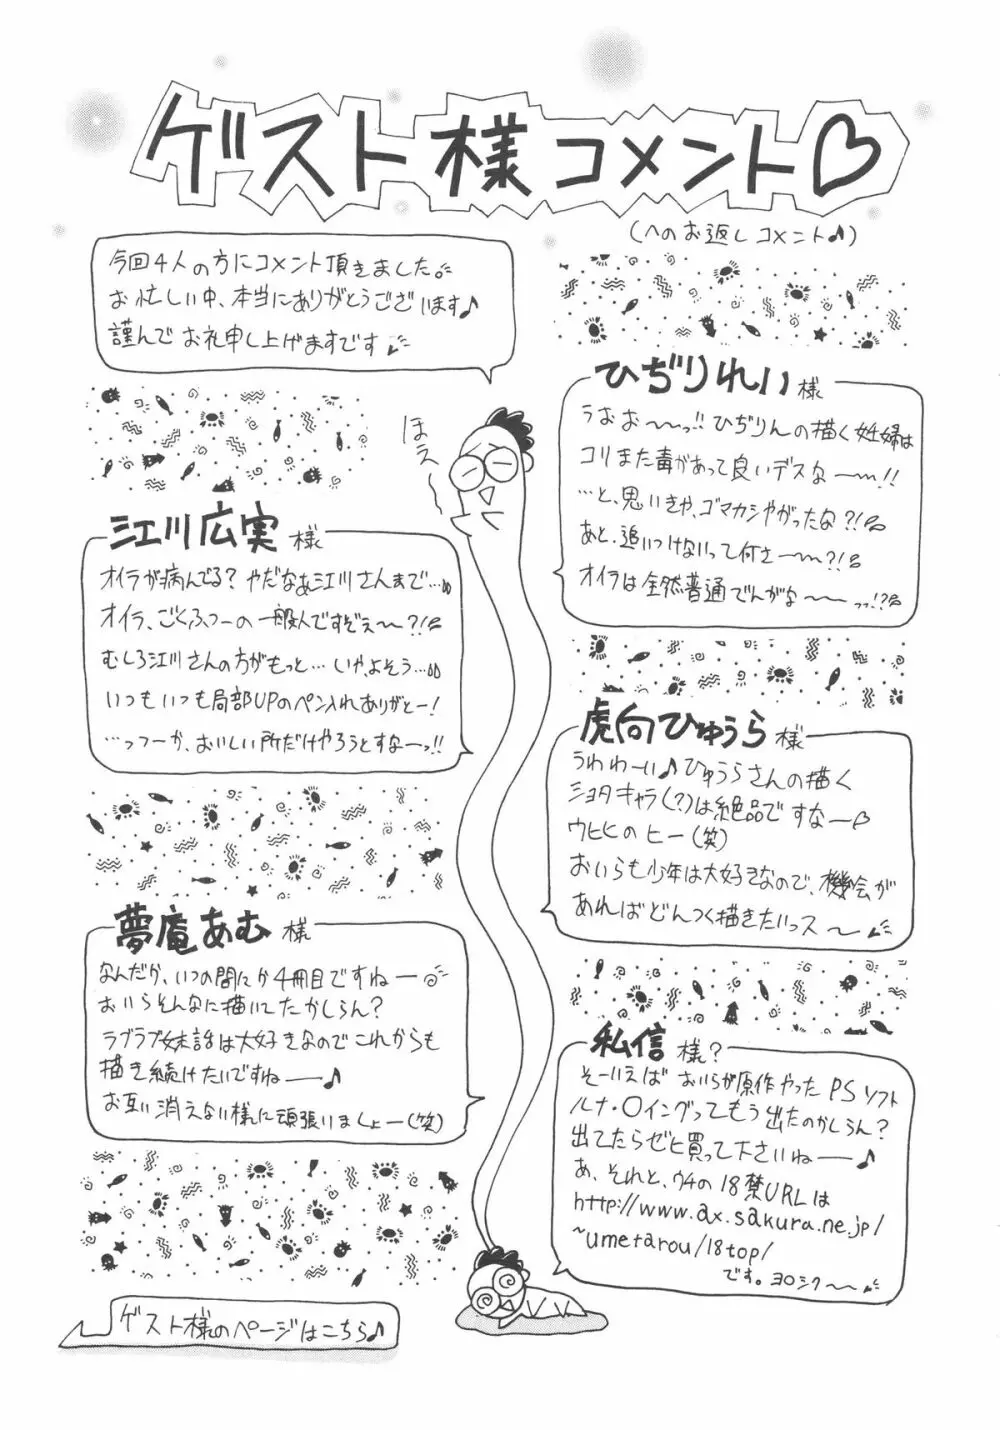 ゲスト様コメント♡
(へのお返しコメント♪)
今回4人の方にコメント頂きました。
お忙しい中、本当にありがとうございます♪
謹んでお礼申し上げますです
ほえ〜
ひぢりれい様
うおお〜〜っ!!ひぢりんの描く妊婦は
コリまた毒があって良いデスな〜〜!!
…と、思いきや、ゴマカシやがったな?!
あと、追いつけないって何さ〜〜?!
オイラは全然普通でんがな〜〜っっ!?
江川広実様
オイラが病んでる?やだなぁ江川さんまで…
オイラ、ごくふつーの一般人ですぞぇ〜?!
むしろ江川さんの方がもっと…いやよそう…
いつもいつも局部UPのペン入れありがとー!
…っつーか、おいしい所だけやろうとすなーっ!!
虎向ひゅうら様
うわわーい♪ひゅうらさんの描く
ショタキャラ(?)は絶品ですなー♡
ウヒヒのヒー(笑)
おいらも少年は大好きなので、機会が
あればどんつく描きたいっス〜
夢庵あむ様
なんだか、いつの間にか4冊目ですねー
おいらそんなに描いてたかしらん?
ラブラブ妹話は大好きなのでこれからも
描き続けたいですねー♪
お互い消えない様に頑張いましょー(笑)
私信様?
そーいえばおいらが原作やったPSソフト
ルナ・〇イングってもう出たのかしらん?
出てたらぜヒ買って下さいねー♪
あ、それと、ウチの18禁URLは
http://www.ax.sakura.ne.jp/
~umetarou/18top/
です。ヨロシク〜〜
ゲスト様のページはこちら♪